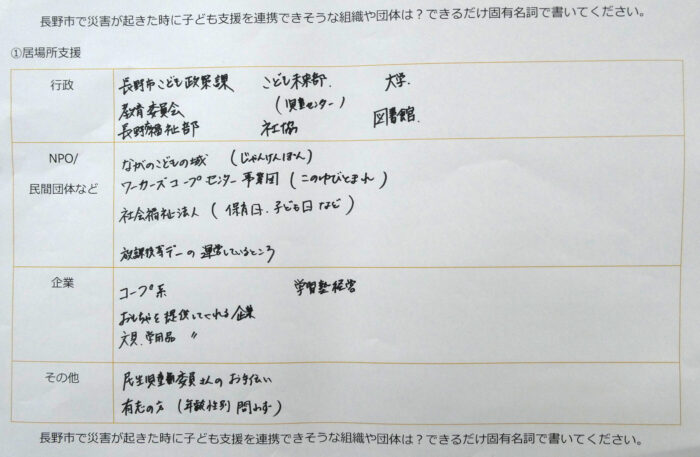 長野市で災害が起きた時に子ども支援を連携できそうな組織や団体は？できるだけ固有名詞で書いてください。
①居場所支援
行政
長野市こども政策課 こども未来部. 大学.
教育委員会 (児童センター)
長野市福祉部 社協 図書館.
NPO/
民間団体など
ながのこどもの城 (じゃんけんぽん)
ワーカーズコープセンター事業団 (このゆびとまれ)
社会福祉法人 (保育日.子ども日など)
放課後等デーの運営しているところ
企業
コープ系 学習塾経営
おもちゃを提供してくれる企業
文具.学用品 〃
その他
民生児童委員さんのお手伝い
有志の方 (年齢性別問わず)
長野市で災害が起きた時に子ども支援を連携できそうな組織や団体は？できるだけ固有名詞で書いてください。